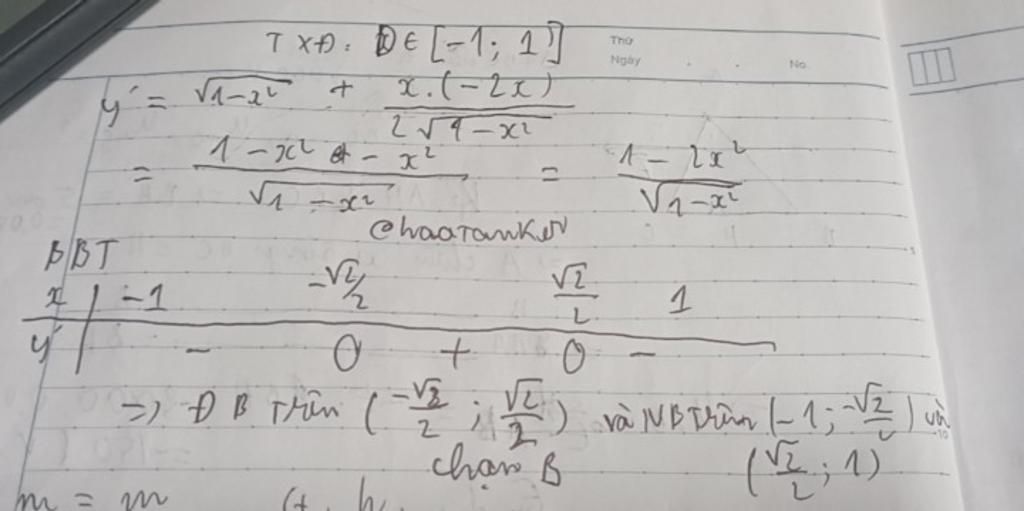 TXĐ: D ∈ [-1; 1]
Thứ
Ngày . . No.
y' = √(1-x²) + x.(-2x) / 2√(1-x²)
= (1-x² - x²) / √(1-x²) = (1-2x²) / √(1-x²)
BBT
x | -1 -√2/2 √2/2 1
y' | - 0 + 0 -
=> ĐB trên (-√2/2 ; √2/2) và NB trên (-1; -√2/2) và
chọn B (√2/2 ; 1)
m = m